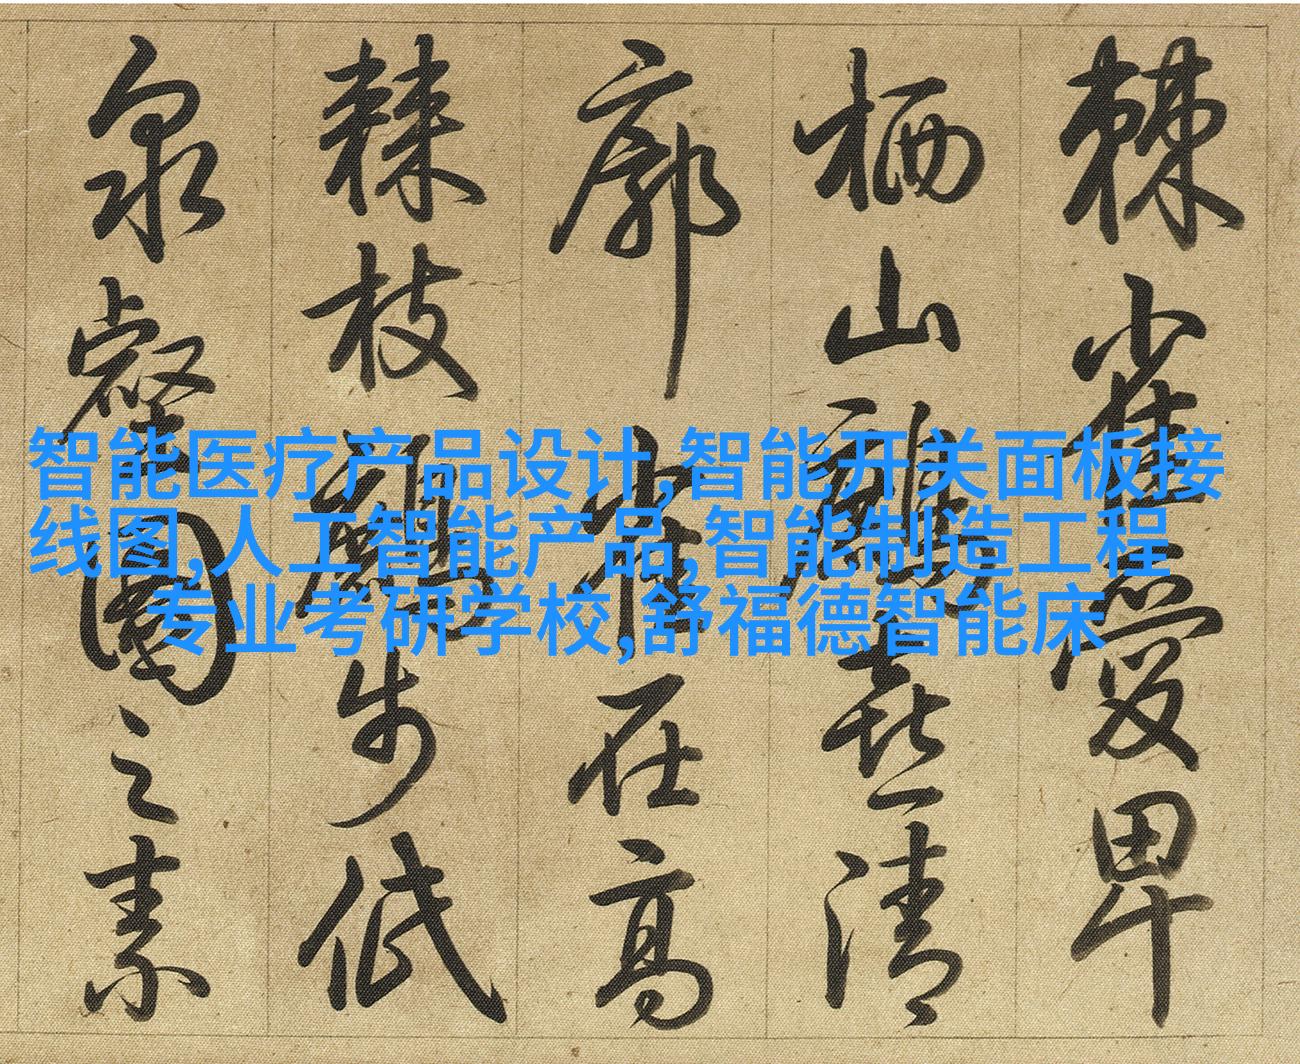 棘雀愛卑
栖山喜清
廓在高
棘枝步低
泉壑園之素
智能医疗产品设计,智能开关面板接
线图,人工智能产品,智能制造工程
专业考研学校,舒福德智能床